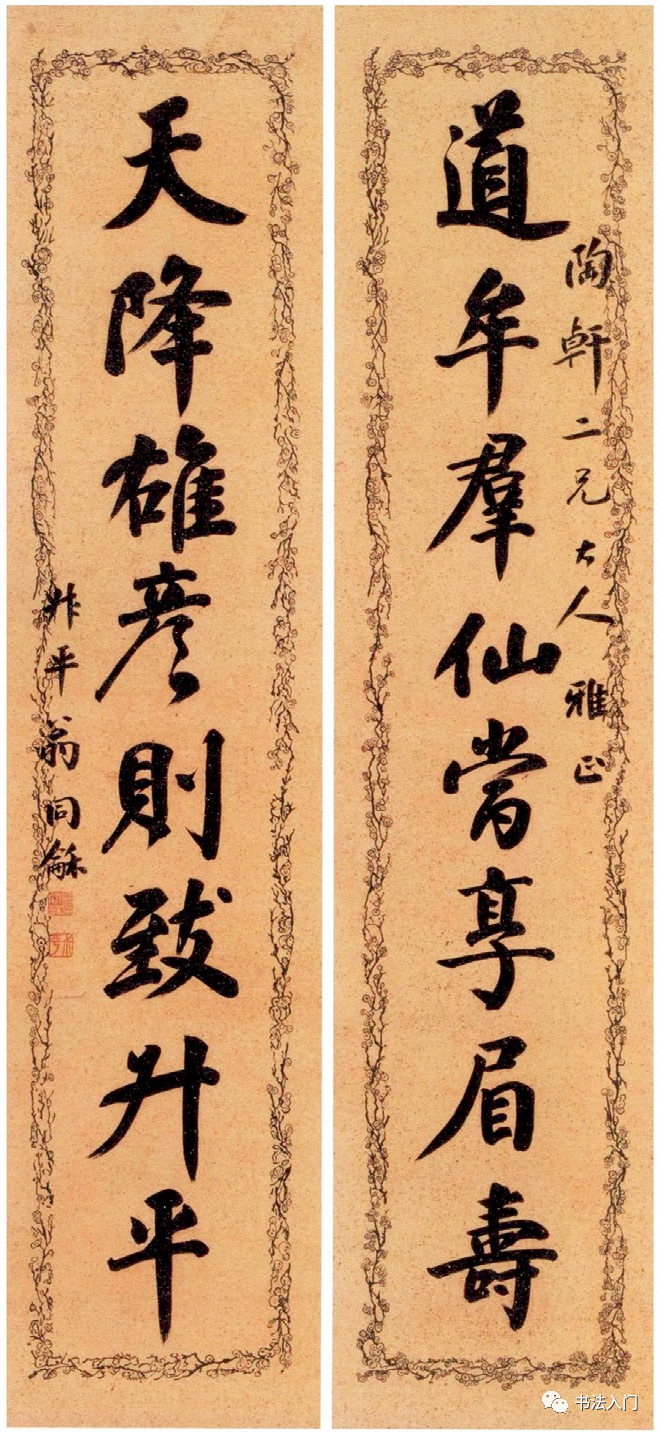 道牟羣仙常享眉壽
陶軒二兄大人雅正
天降雄彥則致升平
叔平翁同龢
书法入门